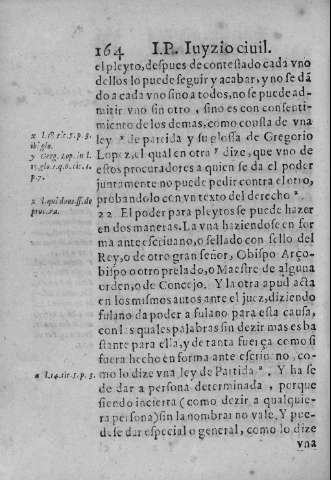 164 I.P. Iuyzio ciuil.
el pleyto, despues de contestado cada vno
dellos lo puede seguir y acabar, y no se dã
do a cada vno sino a todos, no se puede ad-
mitir vno sin otro, sino es con consenti-
miento de los demas, como consta de vna
ley x de partida y su glossa de Gregorio
Lopez, el qual en otra y dize, que vno de
estos procuradores a quien se da el poder
juntamente no puede pedir contra el otro,
probandolo con vn texto del derecho z.
22 El poder para pleytos se puede hazer
en dos maneras. La vna haziendose en for
ma ante escriuano, o sellado con sello del
Rey, o de otro gran señor, Obispo Arço-
bispo o otro prelado, o Maestre de alguna
orden, o de Concejo. Y la otra apud acta
en los mismos autos ante el juez, diziendo
fulano da poder a fulano para esta causa,
con las quales palabras sin dezir mas es ba
stante para ella, y de tanta fuerça como si
fuera hecho en forma ante escriuano, co-
mo lo dize vna ley de Partida a. Y ha se
de dar a persona determinada, porque
siendo incierta (como dezir a qualquie-
ra persona) sin la nombrar no vale. Y pue-
dese dar especial o general, como lo dize
vna
x l. 18. tit. 5. p. 3.
ibi glo.
y Greg. Lop. in l.
p. 7.
z l. qui duos ff. de
procura.
a l. 14. tit. 5. p. 3.